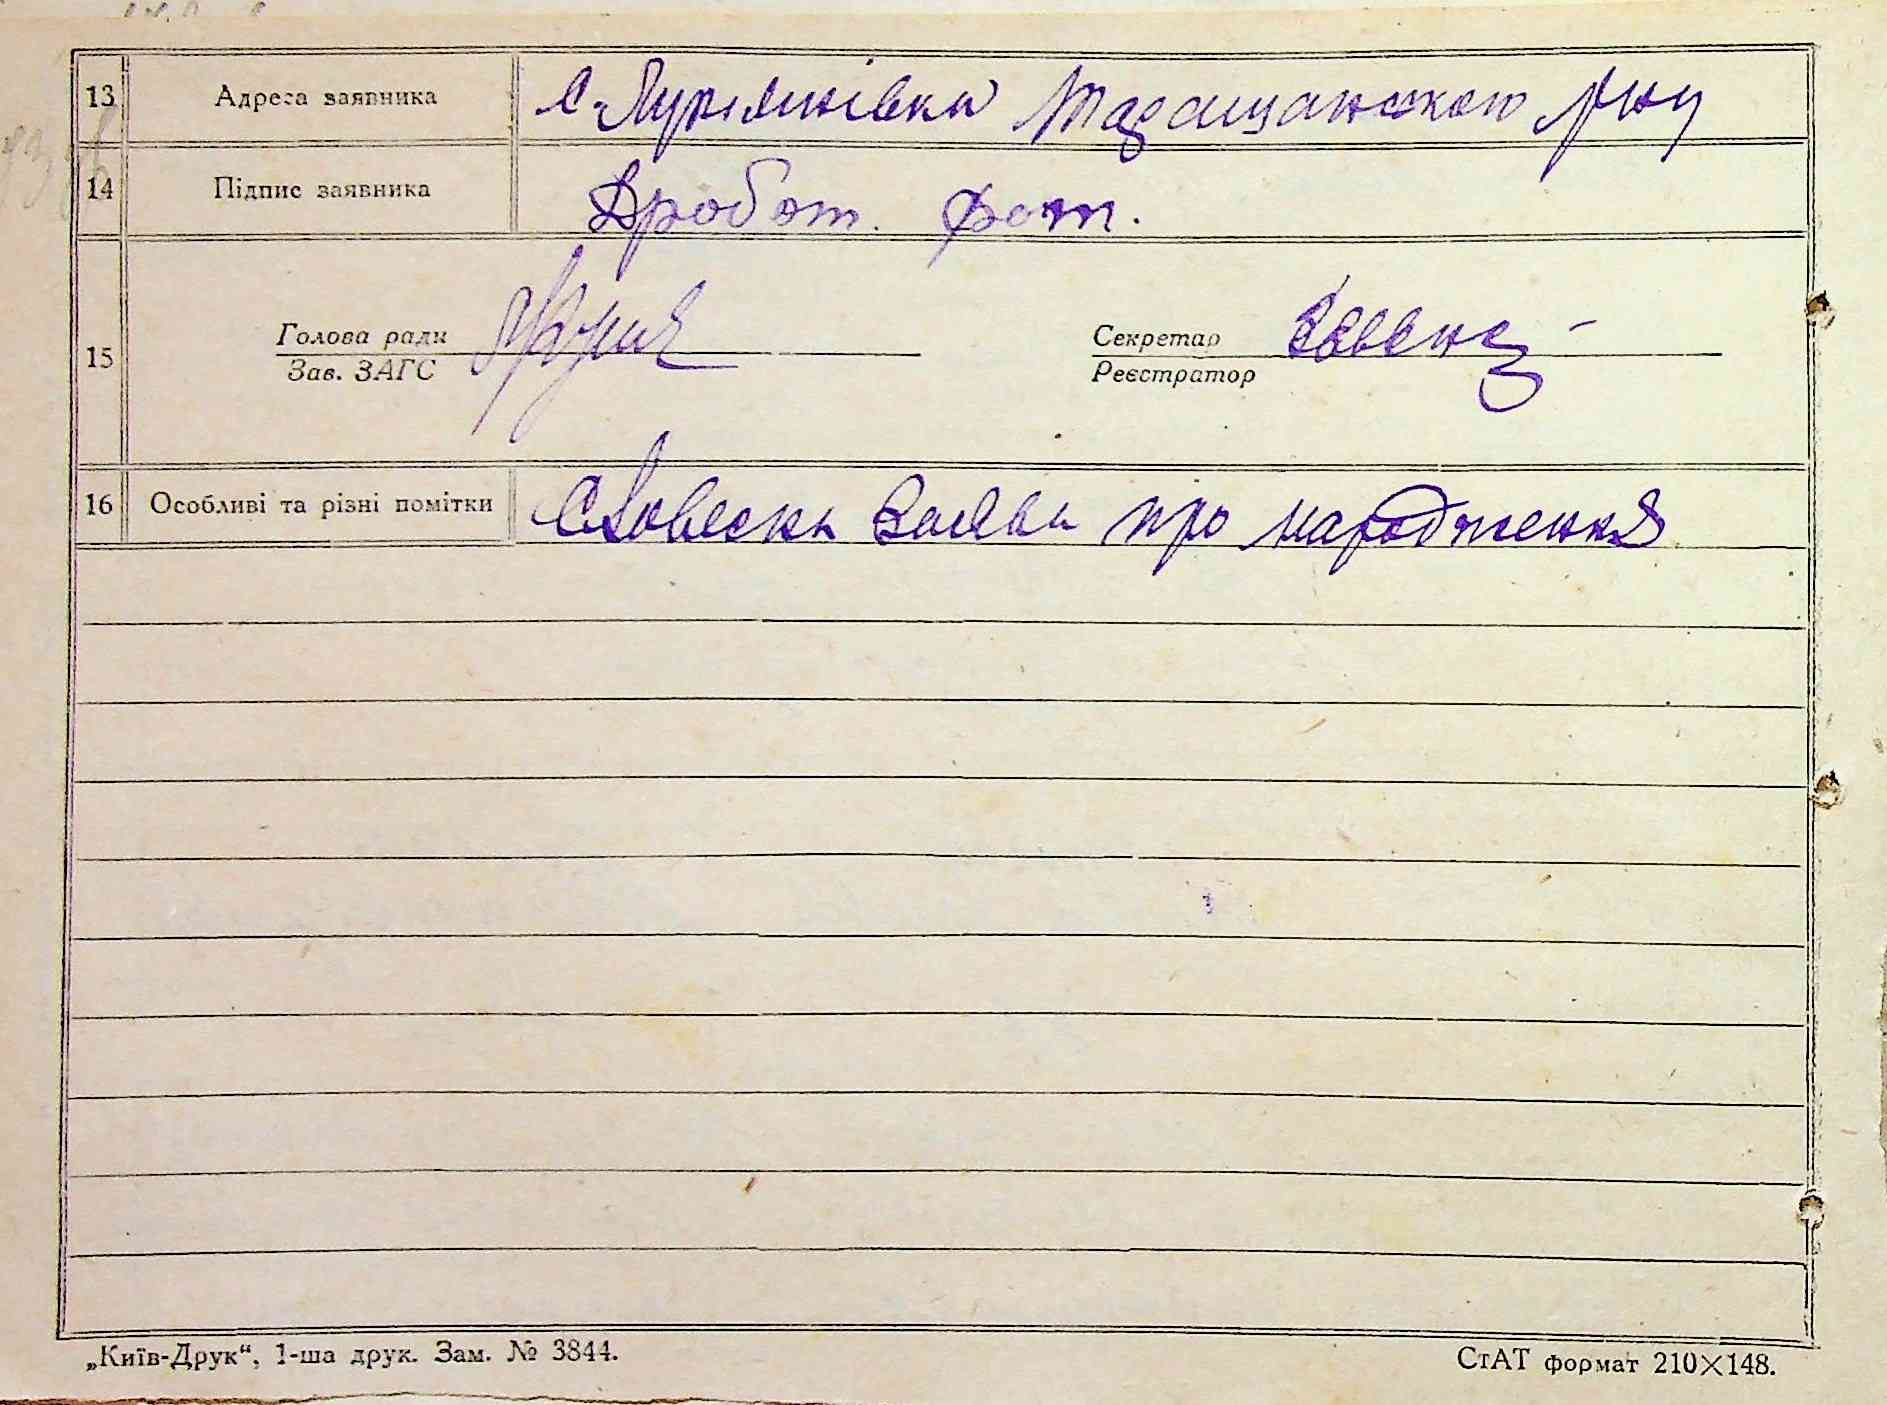 13 Адреса заявника с. Лукянівка Таращанського р-ну
14 Підпис заявника Дробот. Фот.
15 Голова ради Секретар
Зав. ЗАГС Реєстратор
16 Особливі та різні помітки Словесна заява про народження
„Київ-Друк“, 1-ша друк. Зам. № 3844. СтАТ формат 210×148.